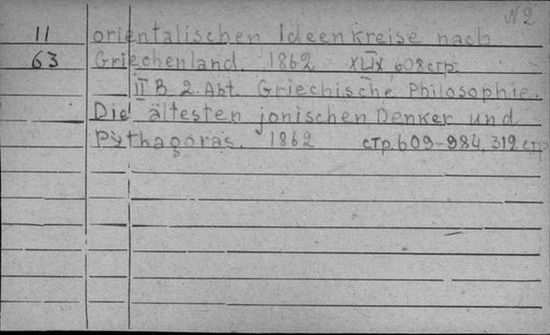 N2
11 orientalischen Ideenkreise nach
63 Griechenland. 1862 XLIX, 608 стр.
II B. 2. Abt. Griechische Philosophie.
Die ältesten jonischen Denker und
Pythagoras. 1862 стр. 609-984, 319 стр